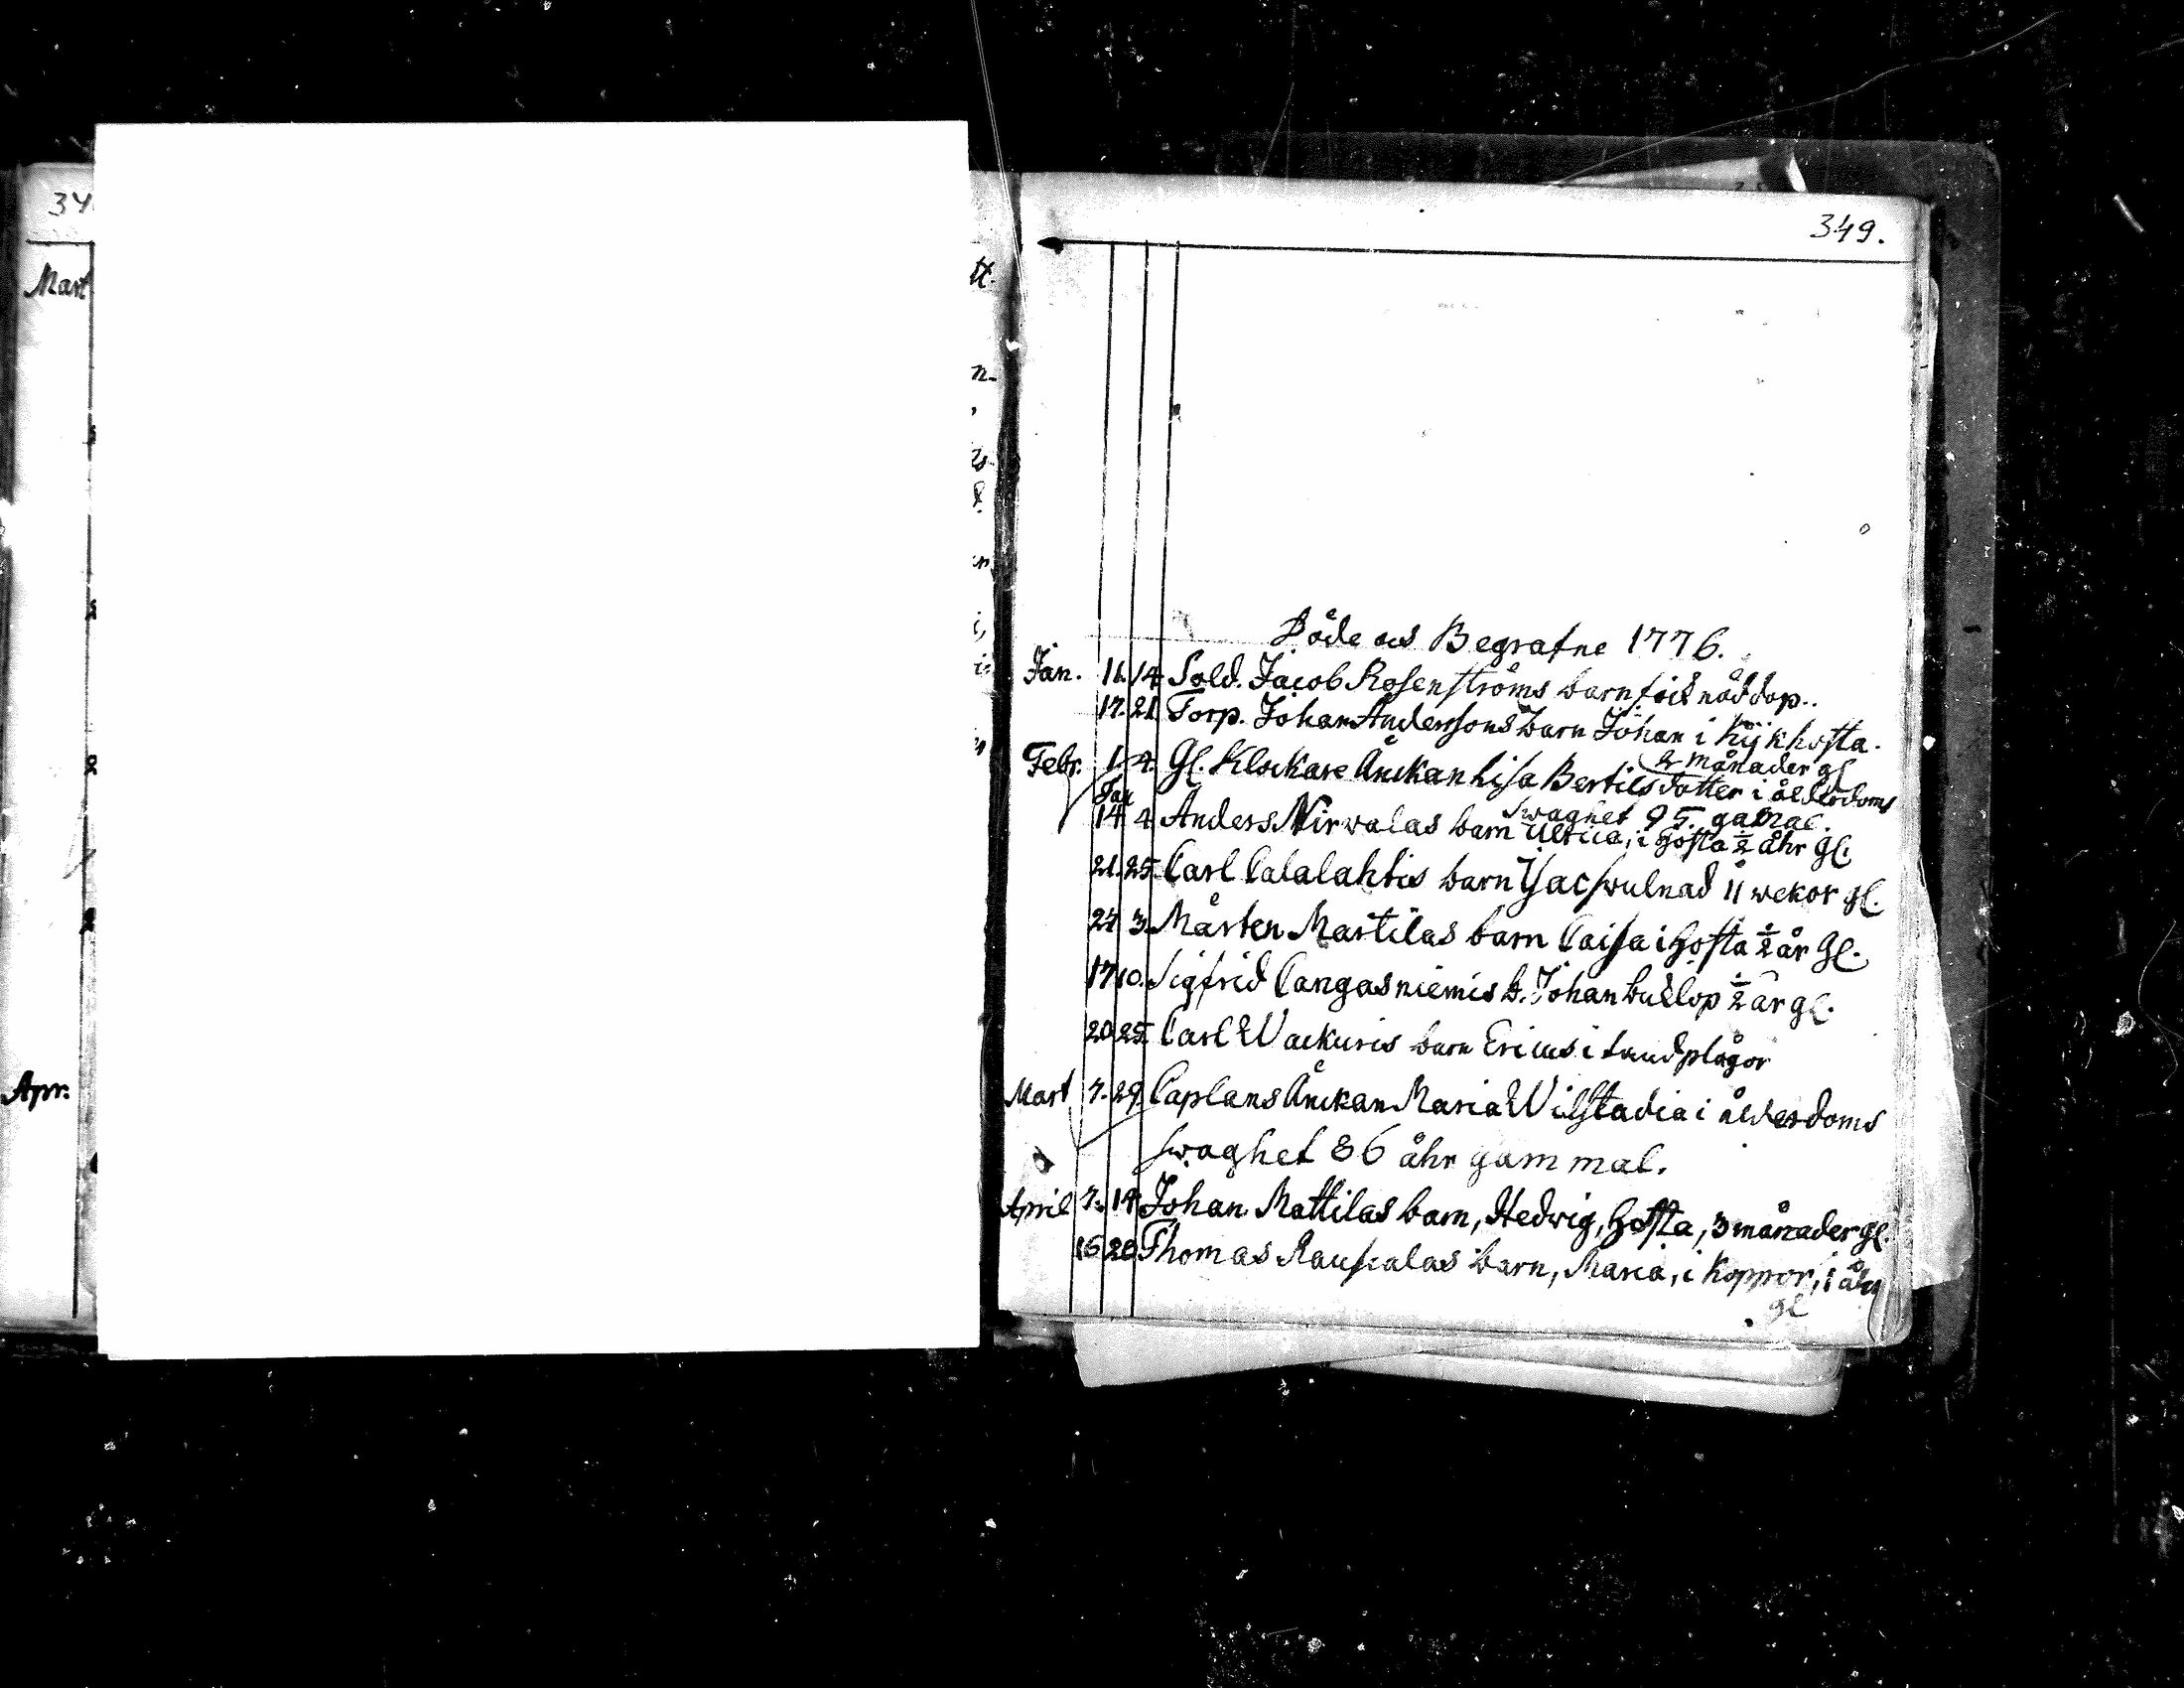 34
Mart
Apr.
349.
Döde och Begrafne 1776.
Jan. 11. 14. Sold. Jacob Rosenströms barn fick nöddop..
17. 21. Torp. Johan Anderssons barn Johan i Kijkhosta.
2 månader gl
Febr. 1. 4. Gl. Klockare Änckan Lisa Bertils dotter i ålderdoms
swaghet 95. gamal.
Jan
14 4 Anders Nirwalas barn Ulrica, i hosta ½ åhr gl.
21. 25. Carl Calalahtis barn Isac swulnad 11 wekor gl.
24 3. Mårten Martilas barn Caisa i hosta ½ år gl.
17 10. Sigfrid Cangasniemis b. Johan bucklop ½ år gl.
20 25. Carl Wackuris barn Ericus i tandplågor
Mart 7. 29. Caplans Änckan Maria Wilstadia i ålderdoms
swaghet 86 åhr gammal.
April 7. 14. Johan Mattilas barn, Hedwig, hosta, 3 månader gl.
16 28. Thomas Rausalas barn, Maria, i Koppor, 1 åhr
gl